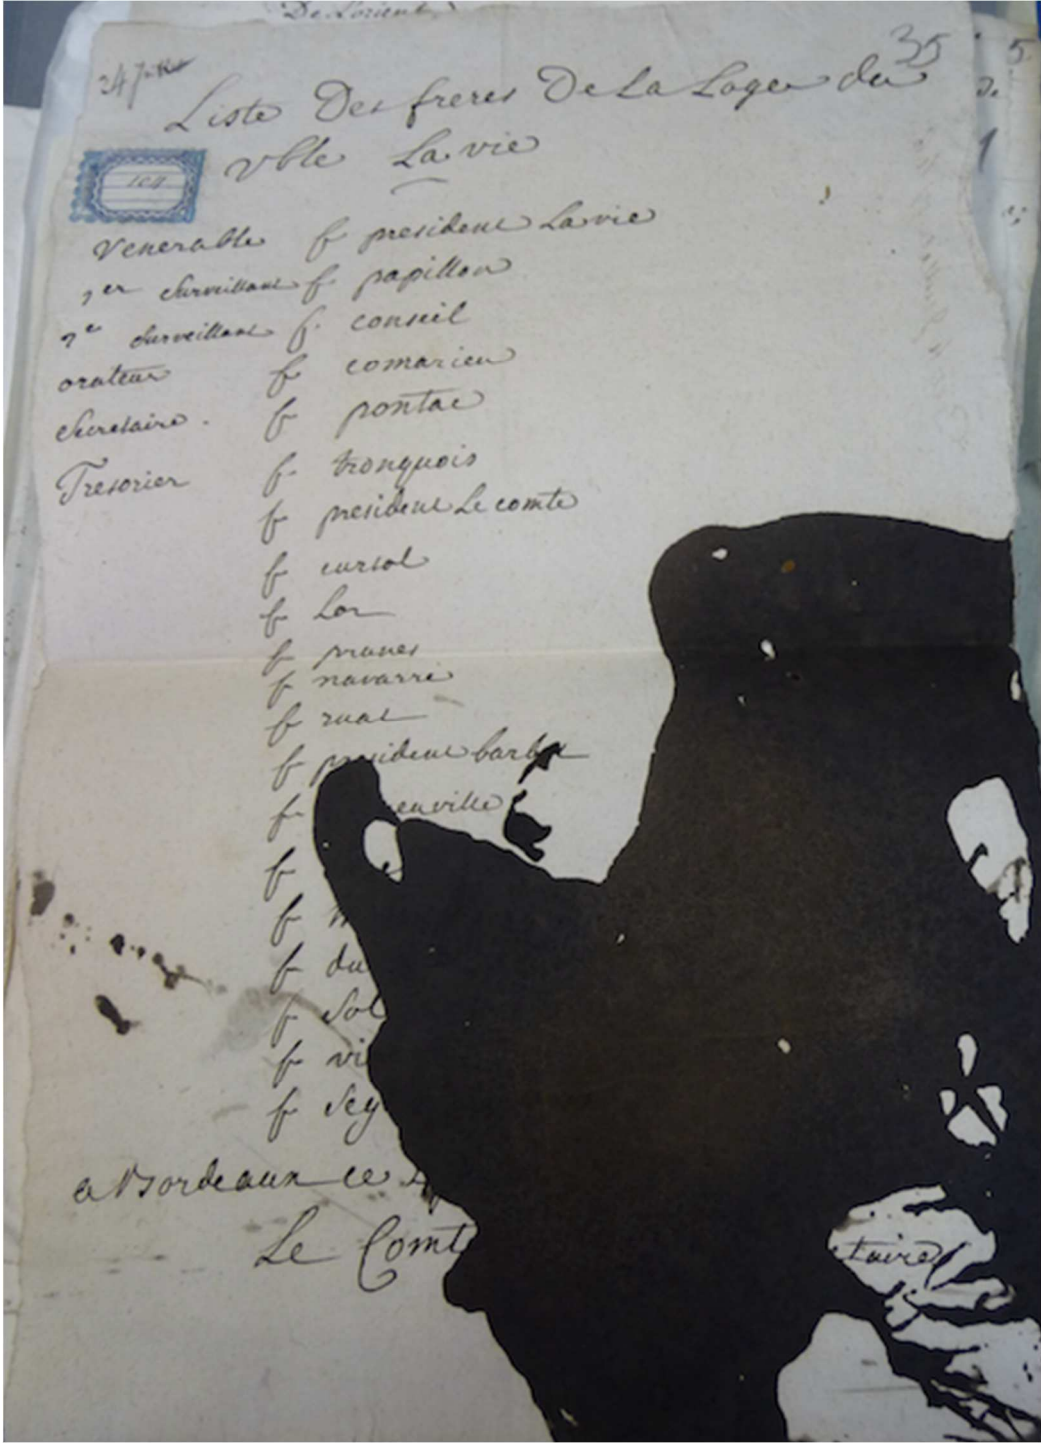 De Lorient
35
24 Juillet
Liste Des freres De La Loge du
vble La vie
104
Venerable f president Lavie
1er Surveillant f papillon
2e Surveillant f. conseil
orateur f comarieu
Secretaire. f pontac
Tresorier f. tronquois
f president Le comte
f cursol
f Lor
f prunes
f navarre
f ruat
f president barb
f. enville
f
f
f du
f Sol
f vi
f Sey
a Bordeaux ce
Le Comt taire